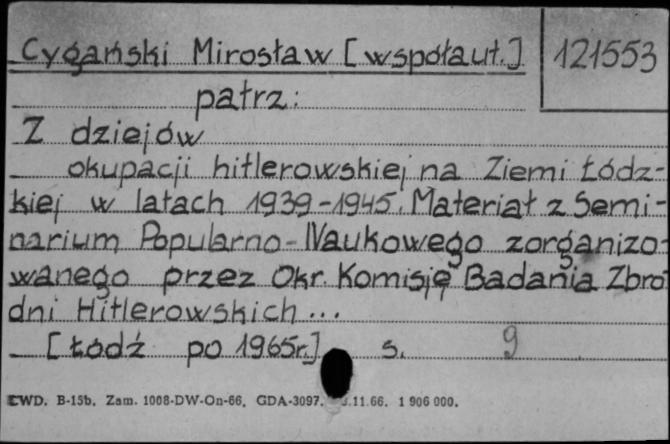 Cygański Mirosław [współaut.] 121553
patrz:
Z dziejów
okupacji hitlerowskiej na Ziemi Łódz-
kiej w latach 1939-1945. Materiał z Semi-
narium Popularno-Naukowego zorganizo-
wanego przez Okr. Komisję Badania Zbro
dni Hitlerowskich...
[Łódź po 1965r.] s. 9
CWD. B-15b. Zam. 1008-DW-On-66. GDA-3097. .11.66. 1 906 000.